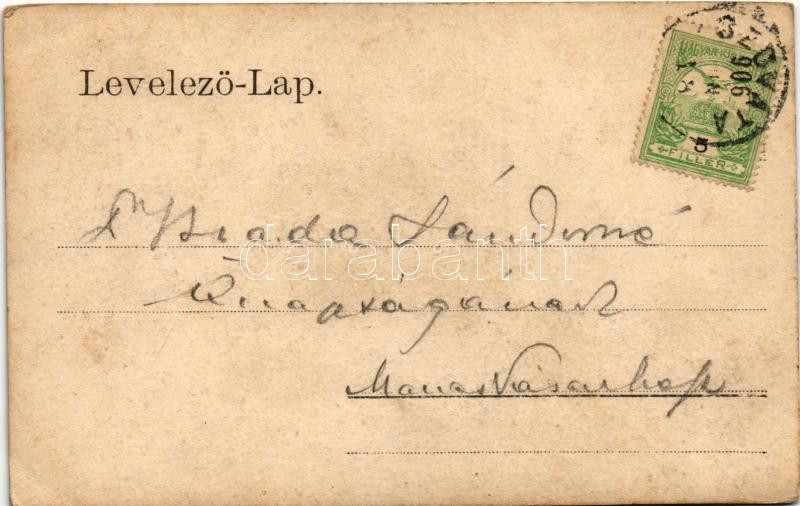 Levelező-Lap.
MAGYAR KIR. POSTA
5
FILLER
SZOVÁTA
906
Dr Sándorné
Őnagyságának
Marosvásárhely
darabanth